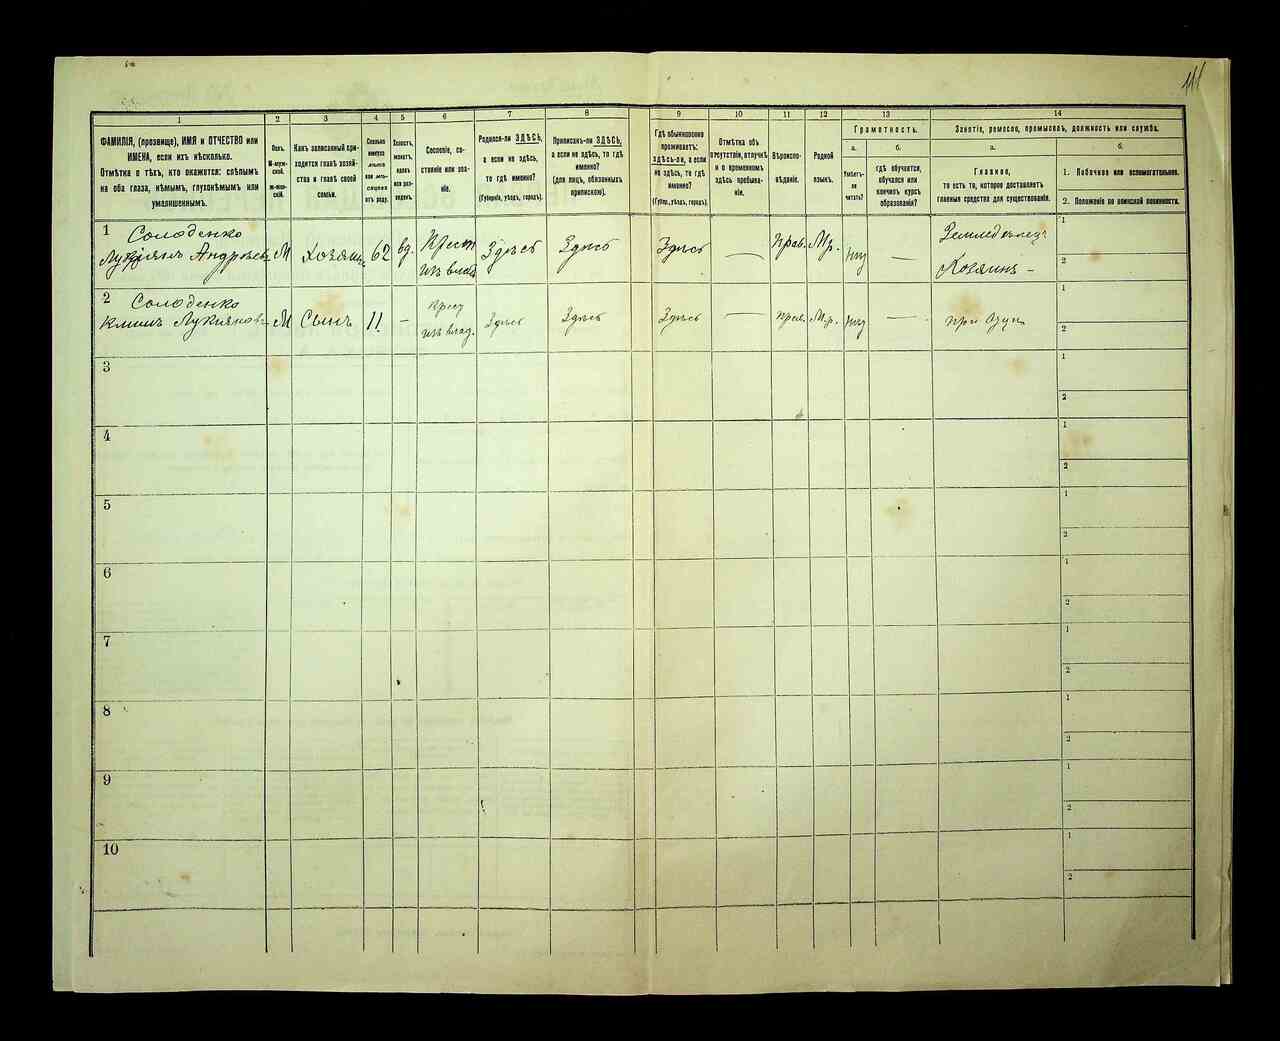 111
1
2
3
4
5
6
7
8
9
10
11
12
13
14
ФАМИЛІЯ, (прозвище), ИМЯ и ОТЧЕСТВО или
ИМЕНА, если ихъ нѣсколько.
Отмѣтка о тѣхъ, кто окажется: слѣпымъ
на оба глаза, нѣмымъ, глухонѣмымъ или
умалишеннымъ.
Полъ.
М-муж-
ской.
Ж-жен-
скій.
Какъ записанный при-
ходится главѣ хозяй-
ства и главѣ своей
семьи.
Сколько
минуло
лѣтъ
или мѣ-
сяцевъ
отъ роду.
Холостъ,
женатъ,
вдовъ
или раз-
веденъ.
Сословіе, со-
стояніе или зва-
ніе.
Родился-ли ЗДѢСЬ,
а если не здѣсь,
то гдѣ именно?
(Губернія, уѣздъ, городъ).
Приписанъ-ли ЗДѢСЬ,
а если не здѣсь, то гдѣ
именно?
(для лицъ, обязанныхъ
припискою).
Гдѣ обыкновенно
проживаетъ:
здѣсь-ли, а если
не здѣсь, то гдѣ
именно?
(Губер., уѣздъ, городъ).
Отмѣтка объ
отсутствіи, отлучкѣ
и о временномъ
здѣсь пребыва-
ніи.
Вѣроиспо-
вѣданіе.
Родной
языкъ.
Грамотность.
а.
Умѣетъ-
ли
читать?
б.
гдѣ обучается,
обучался или
кончилъ курсъ
образованія?
Занятіе, ремесло, промыселъ, должность или служба.
а.
Главное,
то есть то, которое доставляетъ
главныя средства для существованія.
б.
1. Побочное или вспомогательное.
2. Положеніе по воинской повинности.
1
Солоденко
Лукіянъ Андреевъ М Хозяинъ 62 вд. Крест Здѣсь Здѣсь Здѣсь — Прав. Мр. — Земледѣлец
изъ влад Хозяинъ –
1
2
2
Солоденко
Климъ Лукіяновъ М Сынъ 11 – Крест Здѣсь Здѣсь Здѣсь — Прав. Мр. — при отцѣ
изъ влад.
1
2
3
1
2
4
1
2
5
1
2
6
1
2
7
1
2
8
1
2
9
1
2
10
1
2